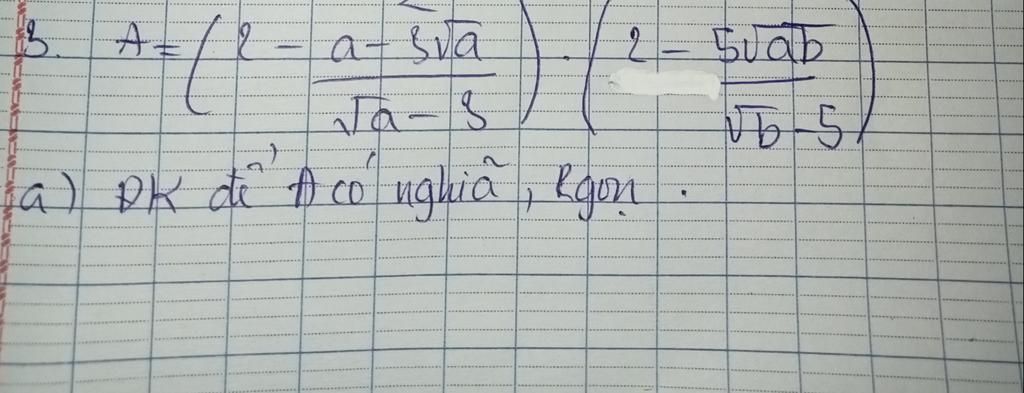 3. A = (2 - \frac{a - 3\sqrt{a}}{\sqrt{a} - 3}) . (2 - \frac{5\sqrt{ab}}{\sqrt{b} - 5})
a) ĐK để A có nghiã, Rgọn .